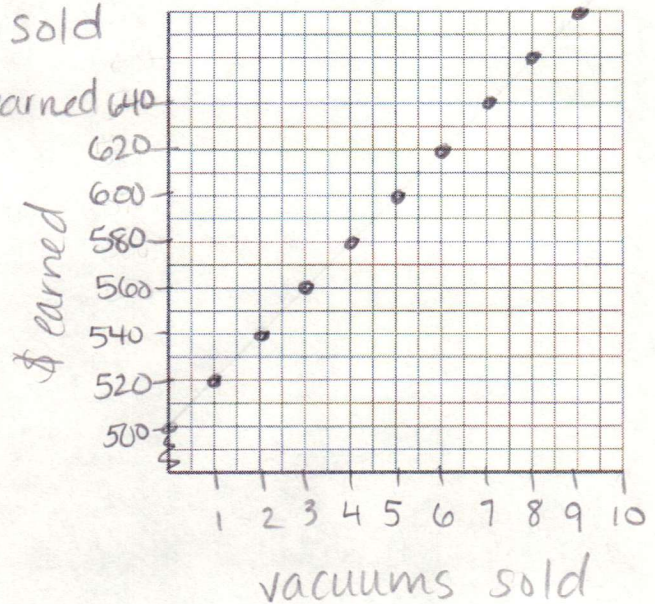 sold
earned
640
620
600
580
560
540
520
500
$ earned
1 2 3 4 5 6 7 8 9 10
vacuums sold